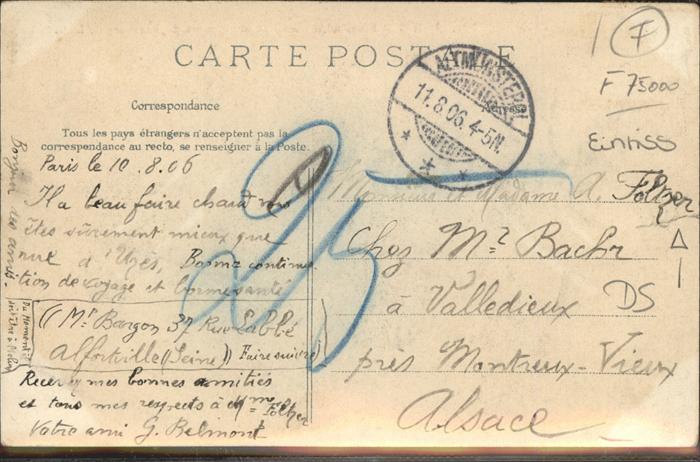 CARTE POSTALE
Correspondance
Tous les pays étrangers n'acceptent pas la
correspondance au recto, se renseigner à la Poste.
Paris le 10.8.06
Il a beau faire chaud vous
êtes sûrement mieux que
rue d'Uzès, Bonne continua
tion de voyage et bonne santé
((Mr Bargon 37 Rue Labbé
Alfortville (Seine)) Faire suivre)
Recevez mes bonnes amitiés
et tous mes respects à Mme Foltzer
Votre ami G. Belmont
Bonjour aux amis.
ALTMÜNSTEROL
11.8.06. 4-5N.
25
F
F 75000
Eintiss
Monsieur et Madame A. Foltzer
Chez Mr Bachr
à Valledieux
DS
près Montreux-Vieux
Alsace